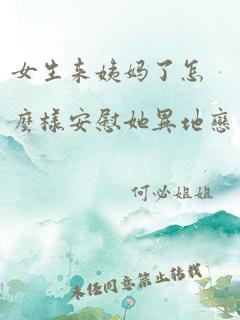 女生来姨妈了怎
麼樣安慰她異地戀
何必姐姐
未经同意禁止转载